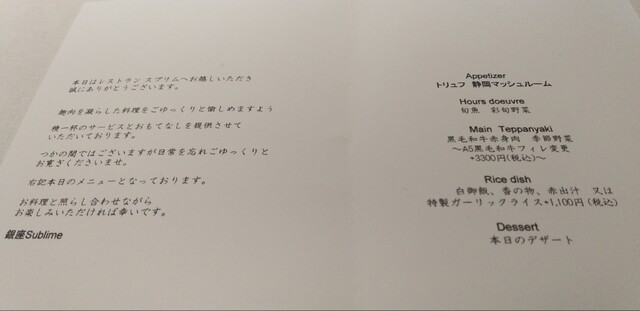 本日はレストラン スブリムへお越しいただき
誠にありがとうございます。
趣向を凝らした料理をごゆっくりと愉しめますよう
精一杯のサービスとおもてなしを提供させて
いただいております。
つかの間ではございますが日常を忘れごゆっくりと
お寛ぎくださいませ。
右記本日のメニューとなっております。
お料理と照らし合わせながら
お楽しみいただければ幸いです。
銀座Sublime
Appetizer
トリュフ 静岡マッシュルーム
Hours doeuvre
旬魚 彩旬野菜
Main Teppanyaki
黒毛和牛赤身肉 季節野菜
～A5黒毛和牛フィレ変更
+3300円(税込)～
Rice dish
白御飯、香の物、赤出汁 又は
特製ガーリックライス+1,100円(税込)
Dessert
本日のデザート